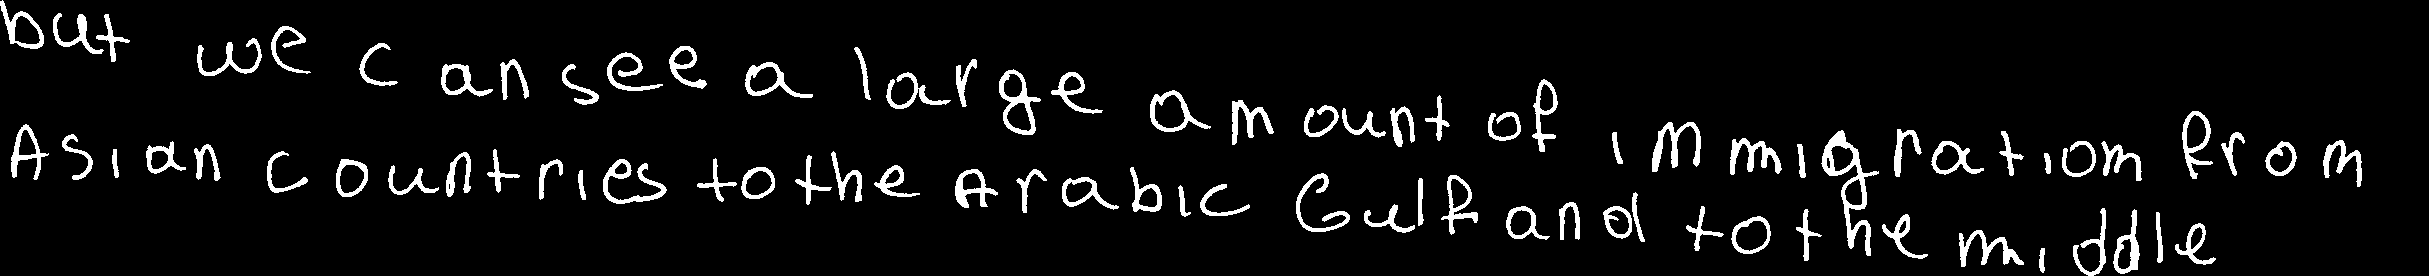 but we can see a large amount of immigration from
Asian countries to the Arabic Gulf and to the middle